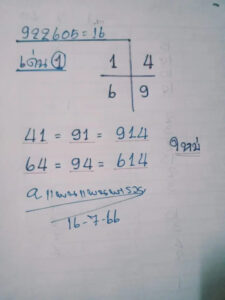 922605=16
เด่น 1
1 4
6 9
41 = 91 = 914
64 = 94 = 614
ใหม่
16-7-66